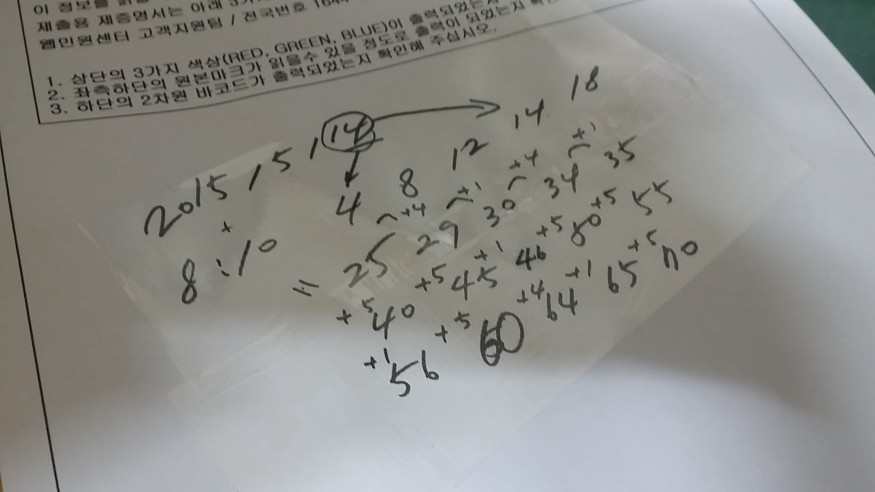 이 정보를 읽
제출용 제증명서는 아래 3가
웹민원센터 고객지원팀 / 전국번호 1644
출력되었는지
1. 상단의 3가지 색상(RED, GREEN, BLUE)이 출력되었는지
2. 좌측하단의 원본마크가 읽을수 있을 정도로 출력이 되었는지 확인
3. 하단의 2차원 바코드가 출력되었는지 확인해 주십시오.
2015 / 5 / 14
4 8 12 14 18
+
8:10
+4 +1 +4 +1
= 25 29 30 34 35
+5 +5 +1 +5 +5
40 45 46 50 55
+1 +5 +4 +1 +5
56 60 64 65 70